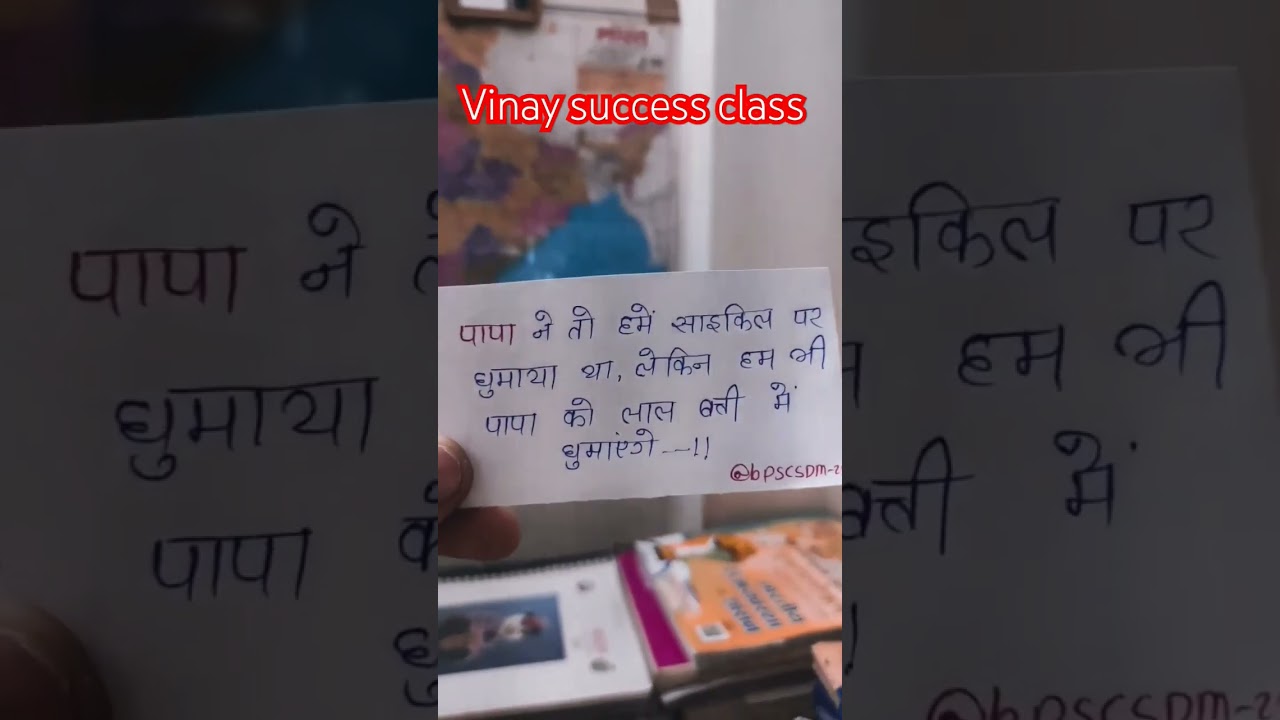 Vinay success class
पापा ने तो हमें साइकिल पर
घुमाया था, लेकिन हम भी
पापा को लाल बत्ती में
घुमाएंगे ---!!
@bpscsdm-2